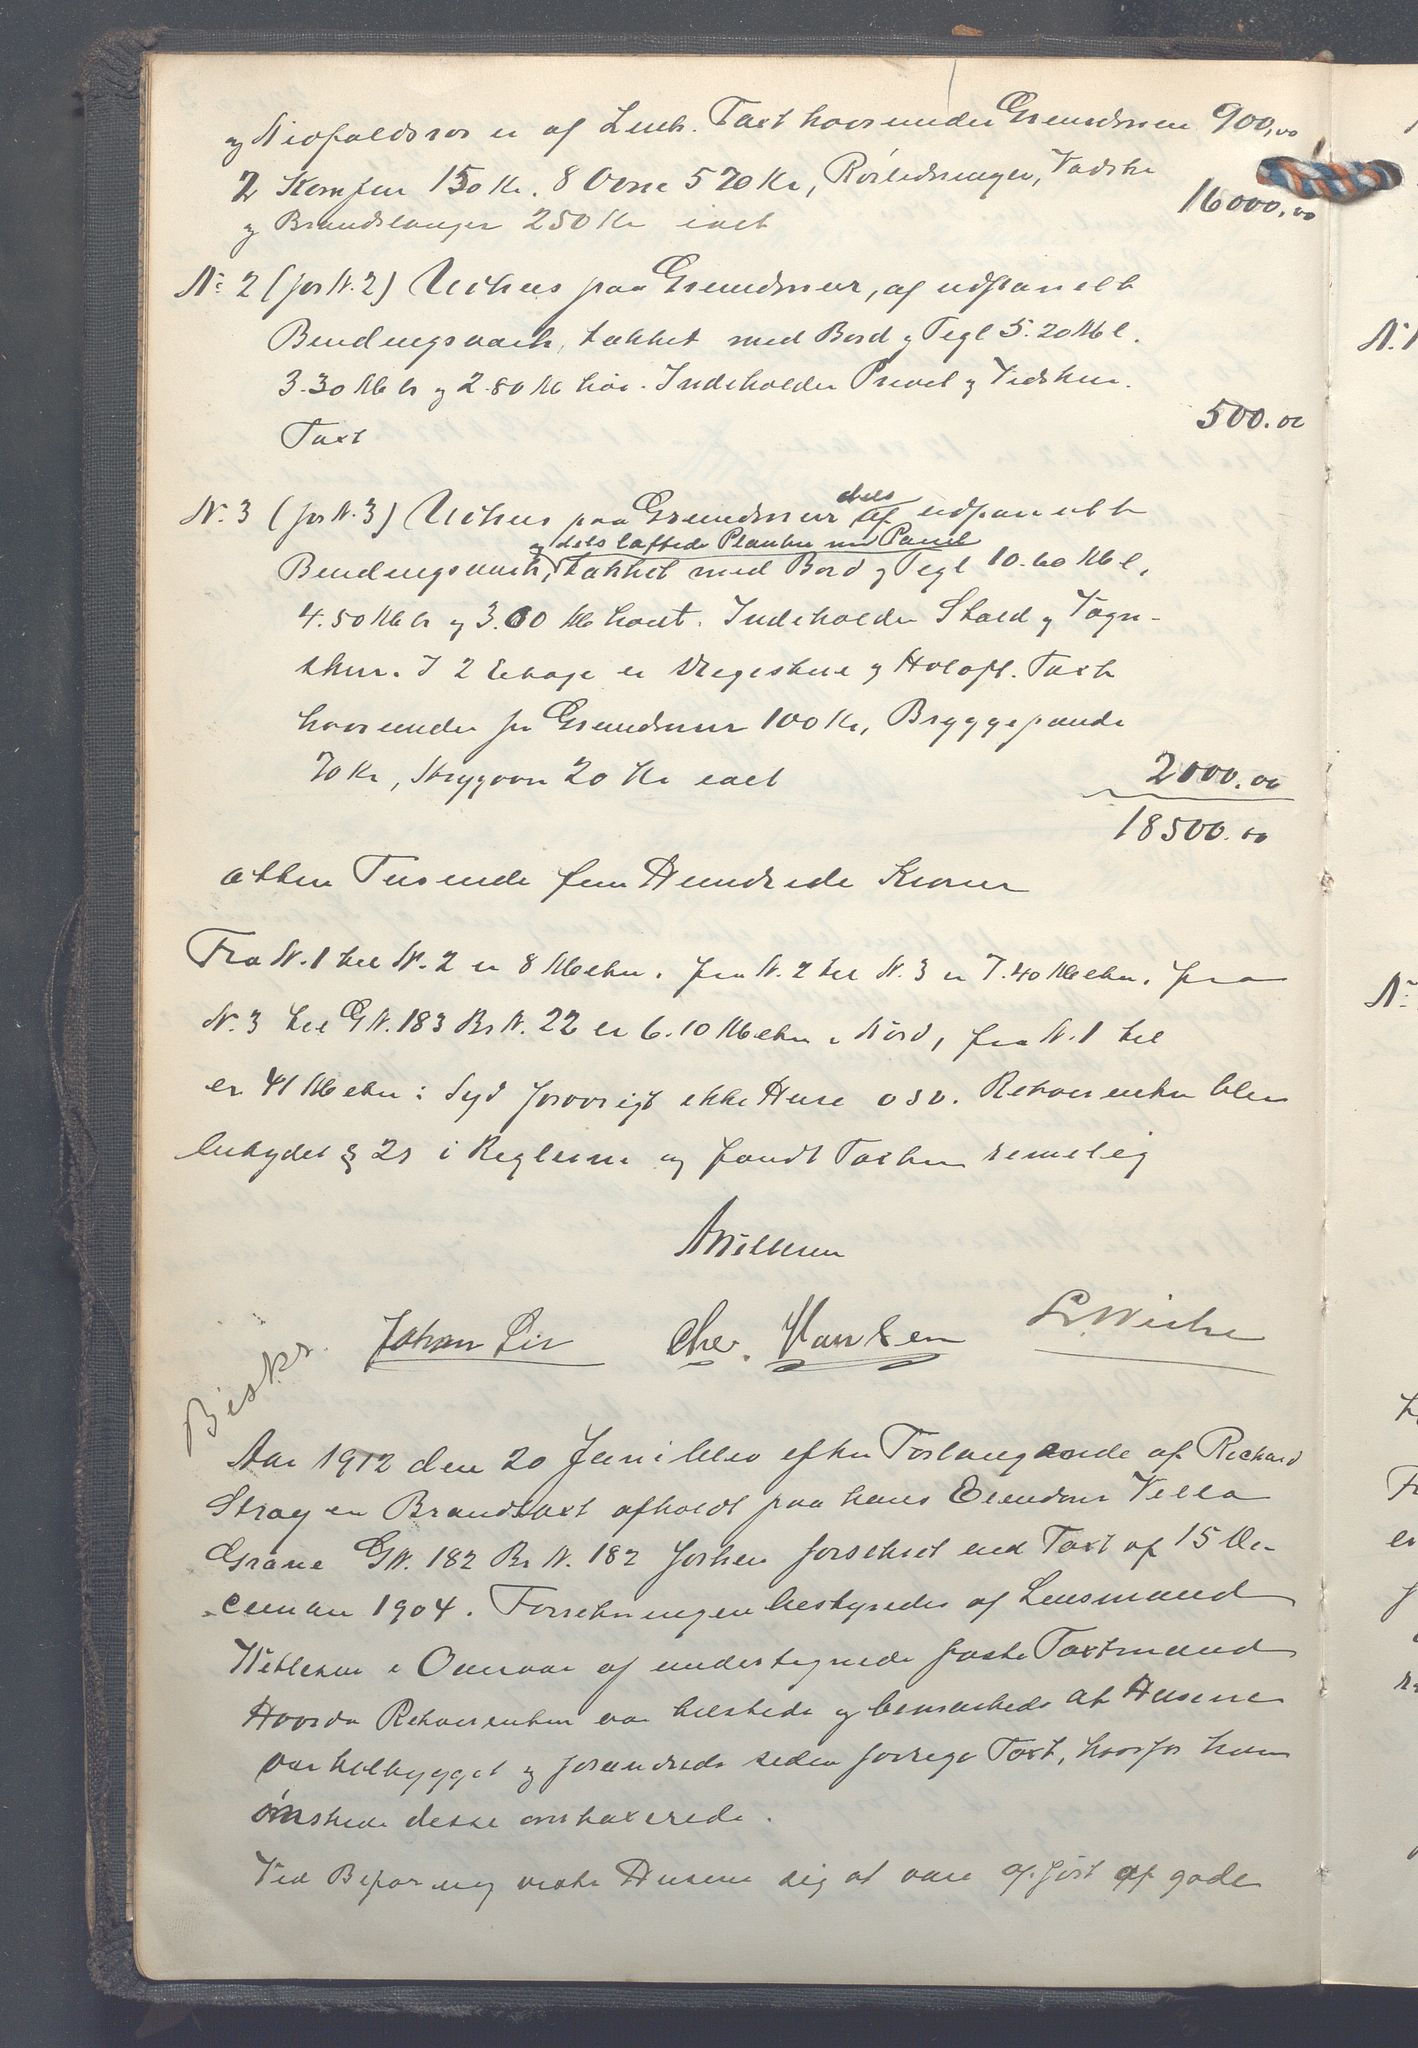 og Nedfaldsrør er af Zink. Taxt hvorunder Grundmur 900,00
2 Komfur 150 Kr. 8 Ovne 570 Kr, Rørledninger, Vadske
og Brandslanger 250 Kr ialt 16000.00
No 2 (før N. 2) Udhus paa Grundmur, af udpanelt
Bindingsværk, tækket med Bord og Tegl 5.20 M l.
3.30 M b og 2.80 M høi. Indeholder Privet og Vedskur.
Taxt 500.00
N. 3 (før N. 3) Udhus paa Grundmur dels af udpanelt
og dels laftede Planker med Panel
Bindingsværk, tækket med Bord og Tegl 10.60 M l,
4.50 M b og 3.60 M høit. Indeholder Stald og Vogn-
skur. I 2 Etage er Rugestue og Høloft. Taxt
hvorunder for Grundmur 100 Kr, Bryggepande
70 Kr, Strygovn 20 Kr ialt 2000.00
18500.00
atten Tusende fem Hundrede Kroner
Fra N. 1 til N. 2 er 8 Meter. fra N. 2 til N. 3 er 7.40 Meter. fra
N. 3 til GN. 183 Br N. 22 er 6.10 Meter i Nord, fra N. 1 til
er 41 Meter i Syd forøvrigt ikke Huse osv. Rekvirenten blev
betydet § 25 i Reglerne og fandt Taxten rimelig
Wetlesen
Johan Lie Chr. Hansen L. Wiche
Beskr.
Aar 1912 den 20 Juni blev efter Forlangende af Richard
Stray en Brandtaxt afholdt paa hans Eiendom Villa
Grane GN. 182 Br N. 182 forhen forsikret ved Taxt af 15 De-
cember 1904. Forretningen bestyredes af Lensmand
Wetlesen i Overvær af undertegnede faste Taxtmænd
Hvorda Rekvirenten var tilstede og bemærkede at Husene
var tilbygget og forandrede siden forrige Taxt, hvorfor han
ønskede disse omtaxerede.
Ved Befaring viste Husene sig at være opført af gode